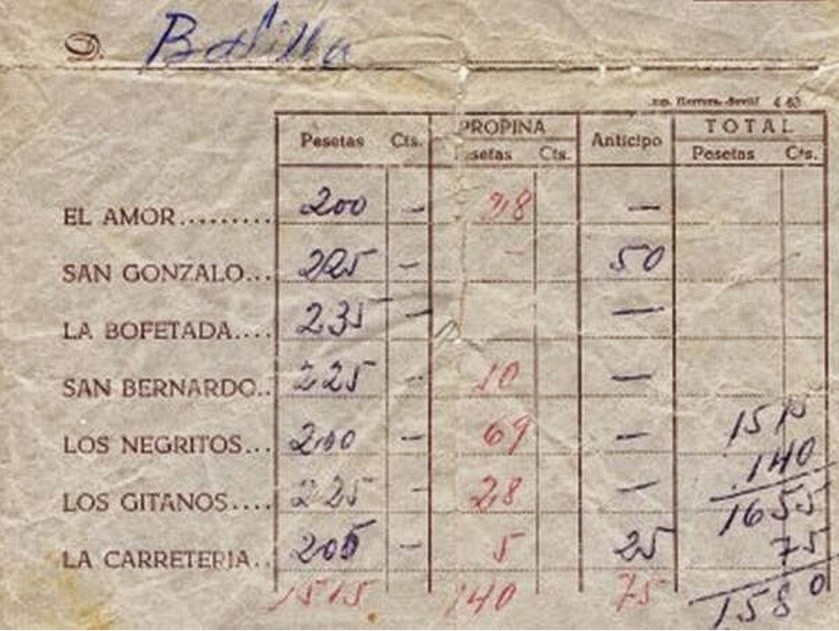 D.
Herrera.-Sevill 4 63
Pesetas Cts. PROPINA Anticipo TOTAL
setas Cts. Pesetas Cts.
EL AMOR......... 200 — 28 —
SAN GONZALO... 225 — — 50
LA BOFETADA.... 235 — —
SAN BERNARDO.. 225 — 10 —
LOS NEGRITOS... 200 — 69 — 1515
140
LOS GITANOS.... 225 28 — 1655
LA CARRETERIA.. 205 — 5 25 75
1515 140 75 1580